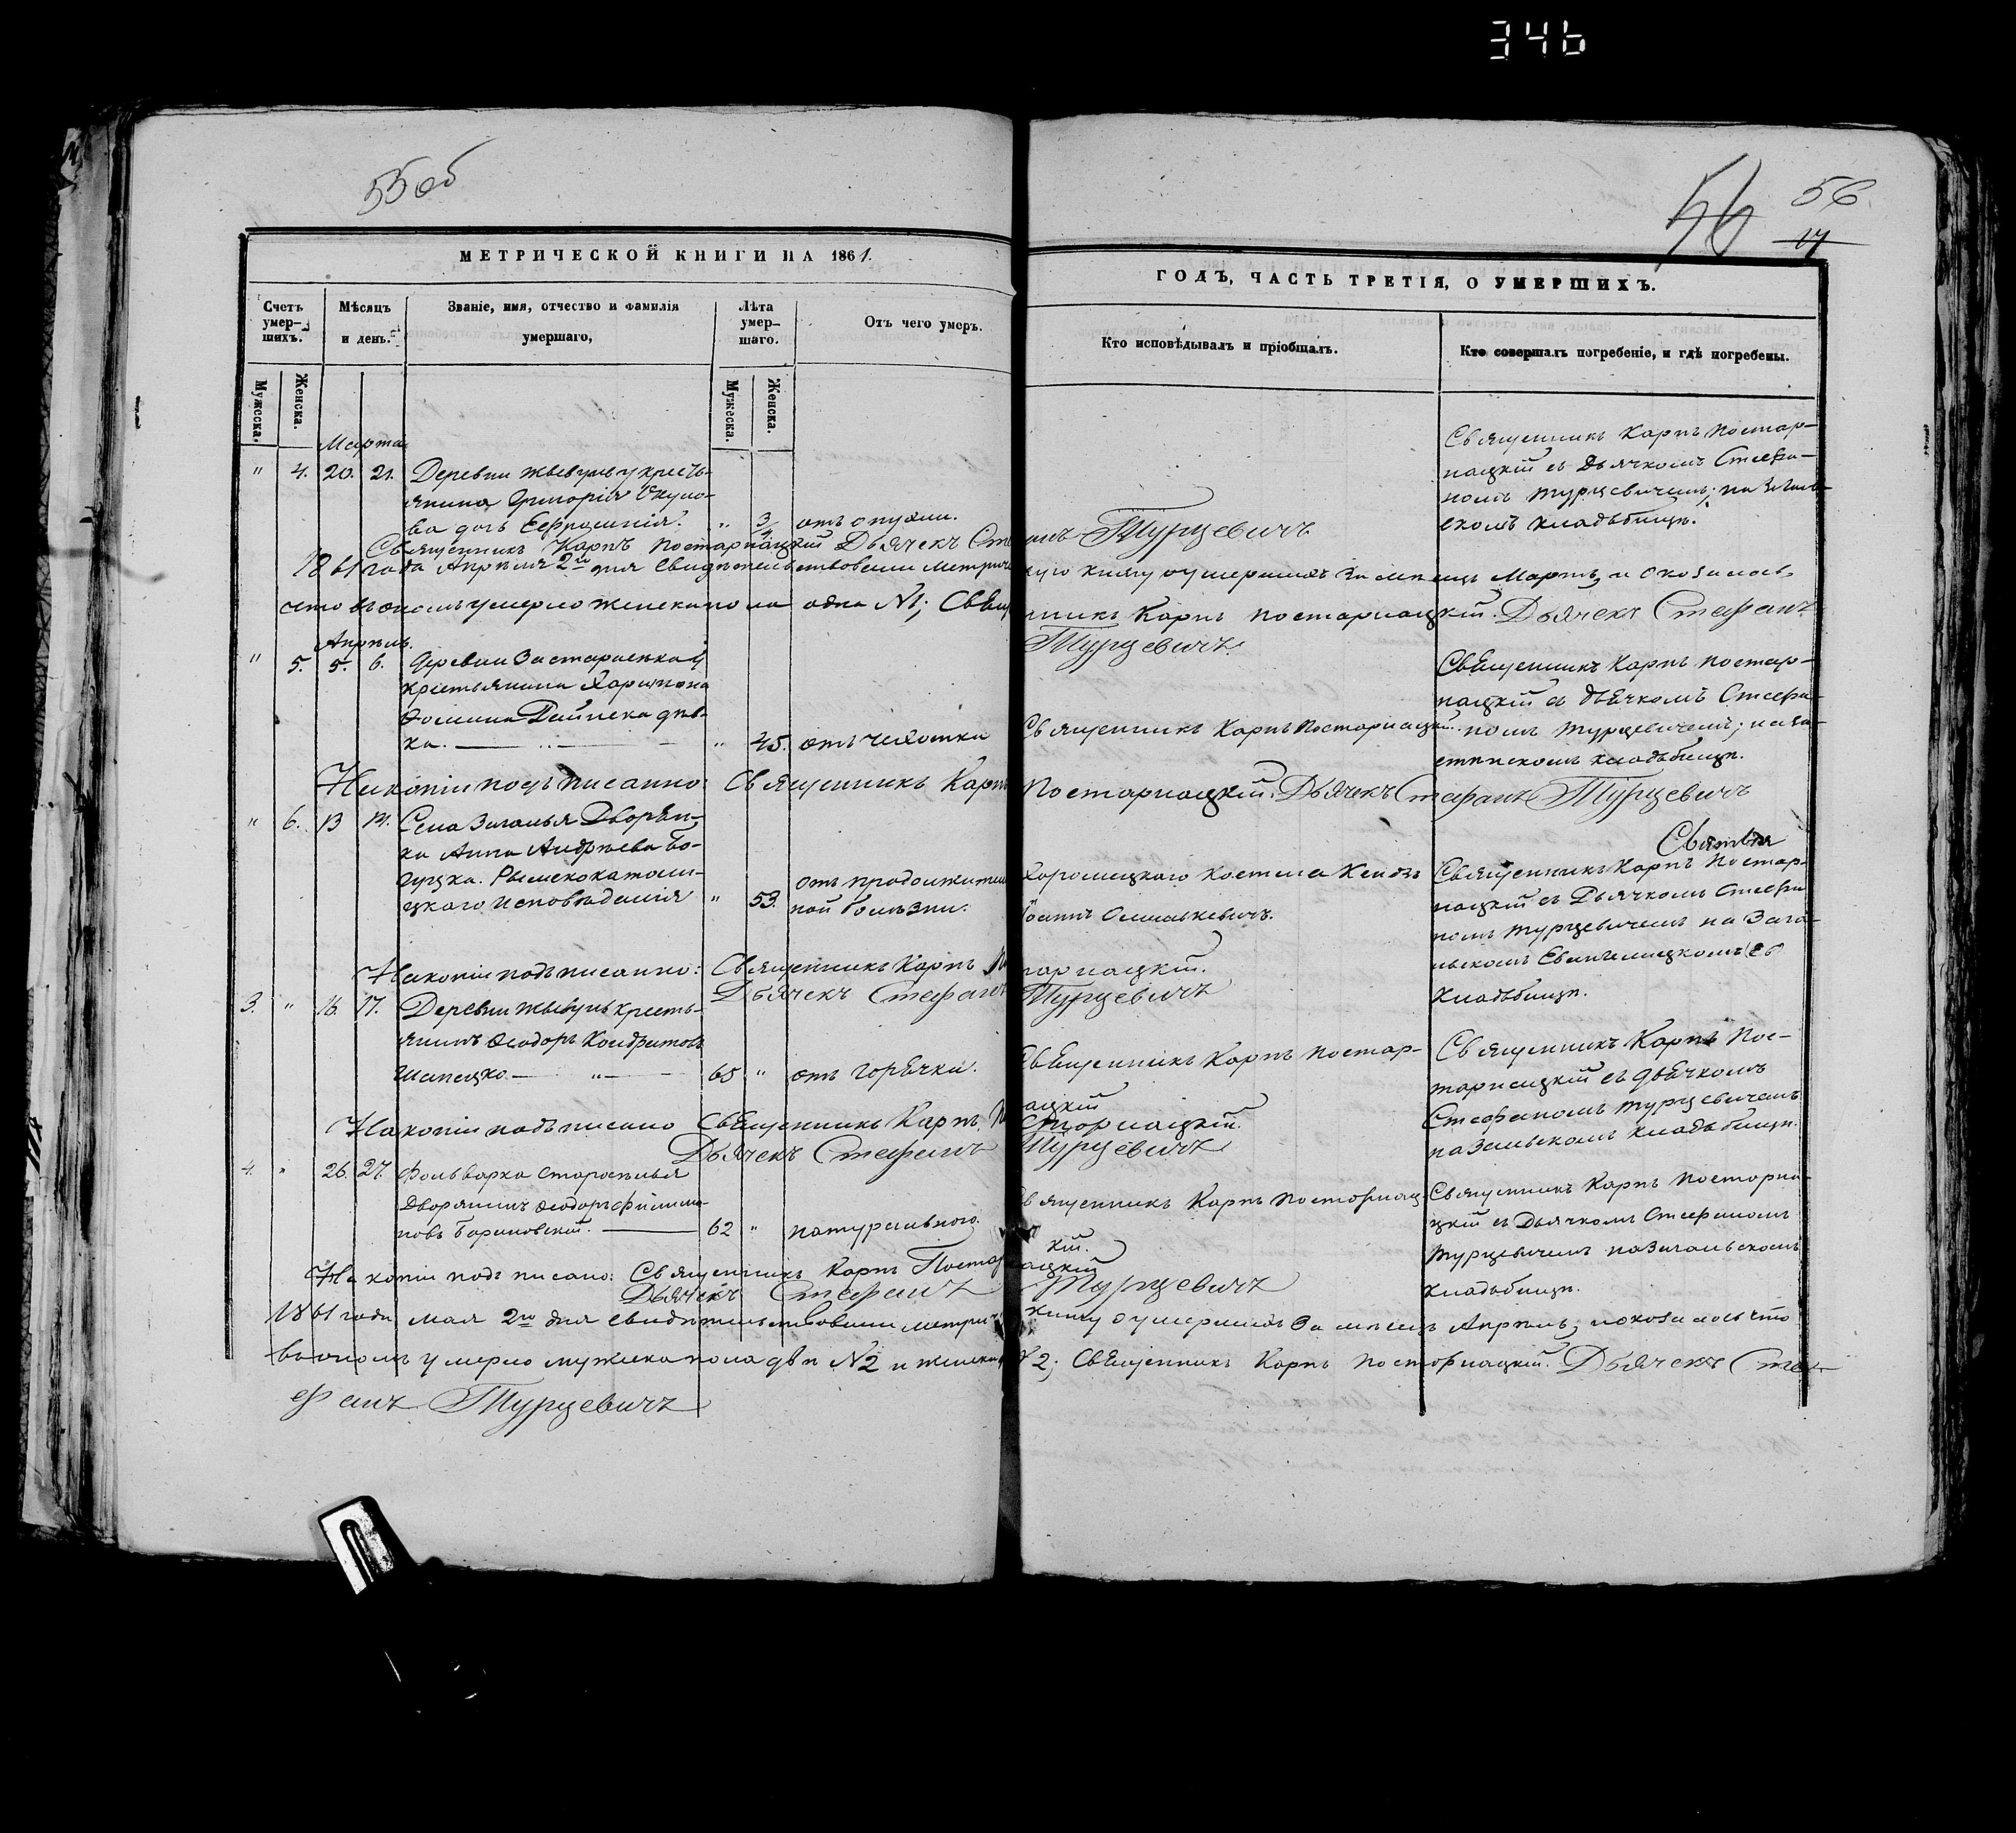 346
55 об
56
56
17
МЕТРИЧЕСКОЙ КНИГИ НА 1861.
ГОДЪ, ЧАСТЬ ТРЕТІЯ, О УМЕРШИХЪ.
Счетъ умер-шихъ.
Мѣсяцъ и день.
Званіе, имя, отчество и фамилія умершаго,
Лѣта умер-шаго.
Отъ чего умеръ.
Кто исповѣдывалъ и пріобщалъ.
Кто совершалъ погребеніе, и гдѣ погребены.
Мужеска.
Женска.
Мужеска.
Женска.
Марта
" 4. 20. 21. Деревни
Григорія
ва дочь Евфросинія. " 3/4 отъ опухли.
Священникъ Карпъ Постар-
нацкій съ Дьячкомъ Стефа-
номъ Турцевичемъ; на
скомъ кладбищѣ.
Священникъ Карпъ Постарнацкій Дьячекъ Стефанъ Турцевичъ
1861 года Апрѣля 2го дня свидѣтельствовали метрическую книгу о умершихъ за мѣсяцъ Мартъ, и оказалось
что въ ономъ умерло женска пола одна №1; Священникъ Карпъ Постарнацкій. Дьячекъ Стефанъ
Турцевичъ.
Апрѣль.
" 5. 5. 6. Деревни
крестьянина Харитона
дѣв-
ка. " 45. отъ чахотки
Священникъ Карпъ Постарнацкій.
Священникъ Карпъ Постар-
нацкій съ дьячкомъ Стефа-
номъ Турцевичемъ; на
кладбищѣ.
На копіи подписанно: Священникъ Карпъ Постарнацкій. Дьячекъ Стефанъ Турцевичъ
" 6. 13 14. Села Загалья Дворян-
ка Анна Андрѣева Бо-
гуцка. Рымскокатоли-
цкаго исповѣданія " 53. отъ продолжитель
ной болѣзни.
костела Ксіондзъ
Іоаннъ
Священникъ Карпъ Постар-
нацкій съ Дьячкомъ Стефа
номъ Турцевичемъ на Зага-
льскомъ
кладбищѣ.
На копіи подписанно: Священникъ Карпъ Постарнацкій.
Дьячекъ Стефанъ Турцевичъ
3. " 16. 17. Деревни кресть-
янинъ Ѳеодоръ Кондратовъ
Шапецко " 65 " отъ горячки.
Священникъ Карпъ Постар-
нацкій
Священникъ Карпъ Пос-
тарнацкій съ дьячкомъ
Стефаномъ Турцевичемъ
на кладбищѣ.
На копіи подписано Священникъ Карпъ Постарнацкій.
Дьячекъ Стефанъ Турцевичъ
4. " 26. 27. Фольварка Староселья
Дворянинъ Ѳеодоръ Филимо-
новъ Барановскій. 62 " натурального.
Священникъ Карпъ Постарнац-
кій.
Священникъ Карпъ Постарна-
цкій съ Дьячкомъ Стефаномъ
Турцевичемъ на Загальскомъ
кладбищѣ.
На копіи подписано: Священникъ Карпъ Постарнацкій
Дьячекъ Стефанъ Турцевичъ
1861 года мая 2го дня свидѣтельствовали метрич. книгу о умершихъ за мѣсяцъ Апрѣль; и оказалось что
въ ономъ умерло мужеска пола двѣ №2 и женска №2; Священникъ Карпъ Постарнацкій. Дьячекъ Сте-
фанъ Турцевичъ